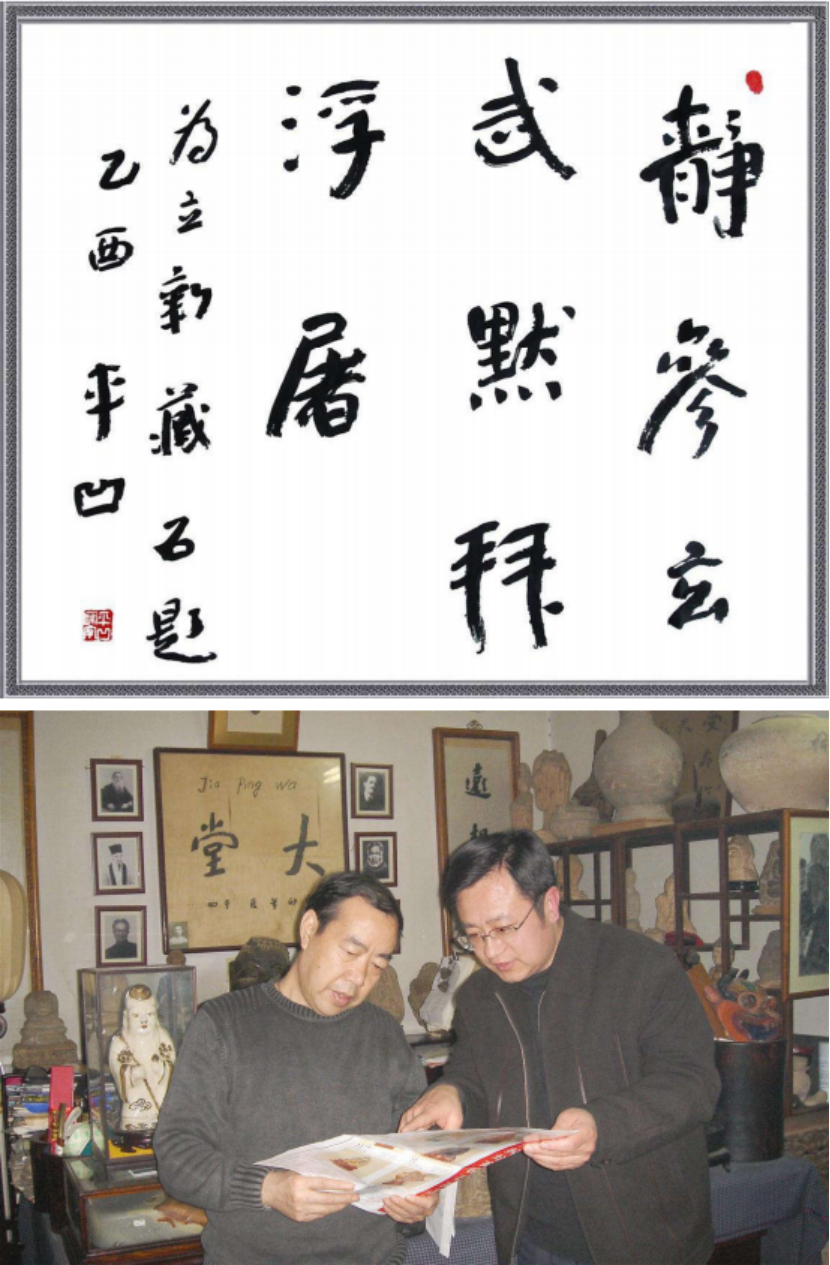 靜參玄
武默拜
浮屠
為立新藏石題
乙酉 平凹
Jia Ping wa
大堂
遠